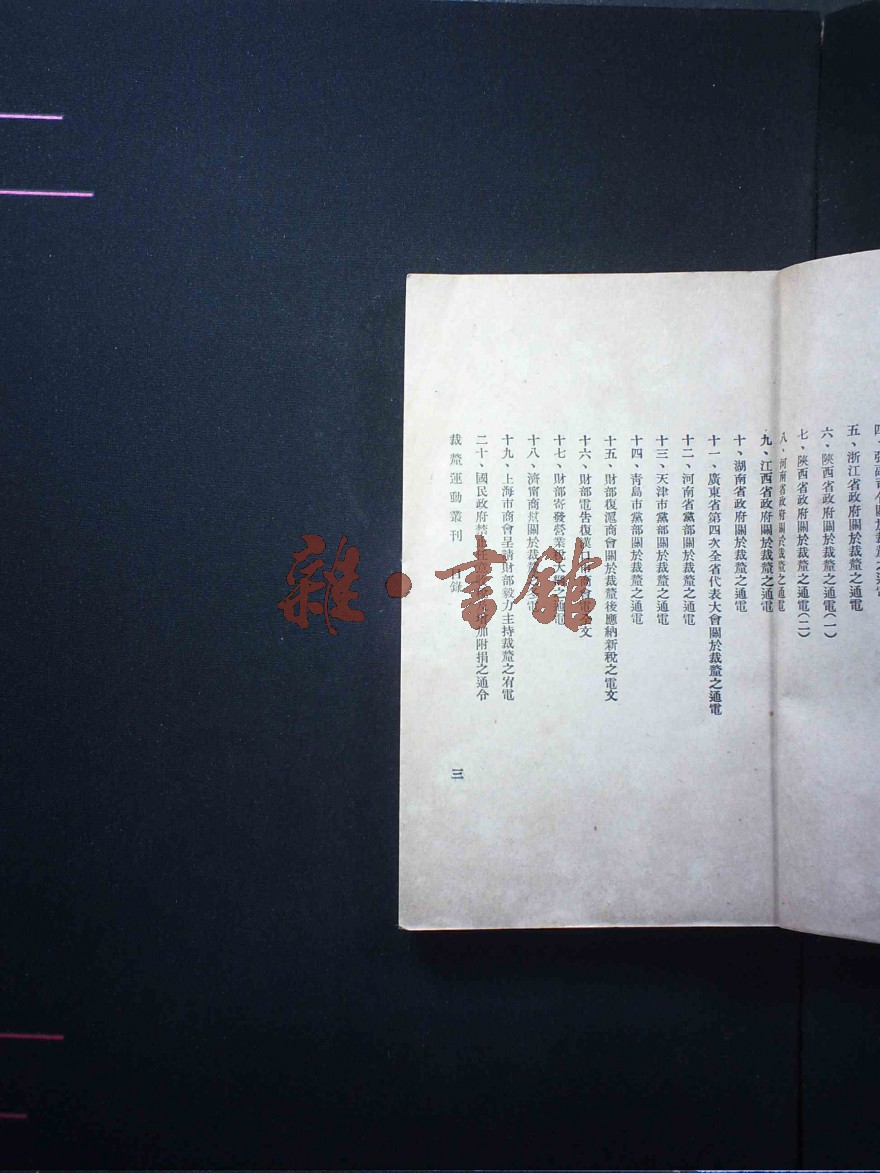 五、浙江省政府關於裁釐之通電
六、陝西省政府關於裁釐之通電(一)
七、陝西省政府關於裁釐之通電(二)
八、河南省政府關於裁釐之通電
九、江西省政府關於裁釐之通電
十、湖南省政府關於裁釐之通電
十一、廣東省第四次全省代表大會關於裁釐之通電
十二、河南省黨部關於裁釐之通電
十三、天津市黨部關於裁釐之通電
十四、青島市黨部關於裁釐之通電
十五、財部復滬商會關於裁釐後應納新稅之電文
十六、財部電吿復商會電全文
十七、財部寄發營業稅大綱之通電
十八、濟甯商會關於裁釐之通電
十九、上海市商會呈請財部毅力主持裁釐之宥電
二十、國民政府禁止附加附捐之通令
裁釐運動叢刊 目錄
三
雜·書館